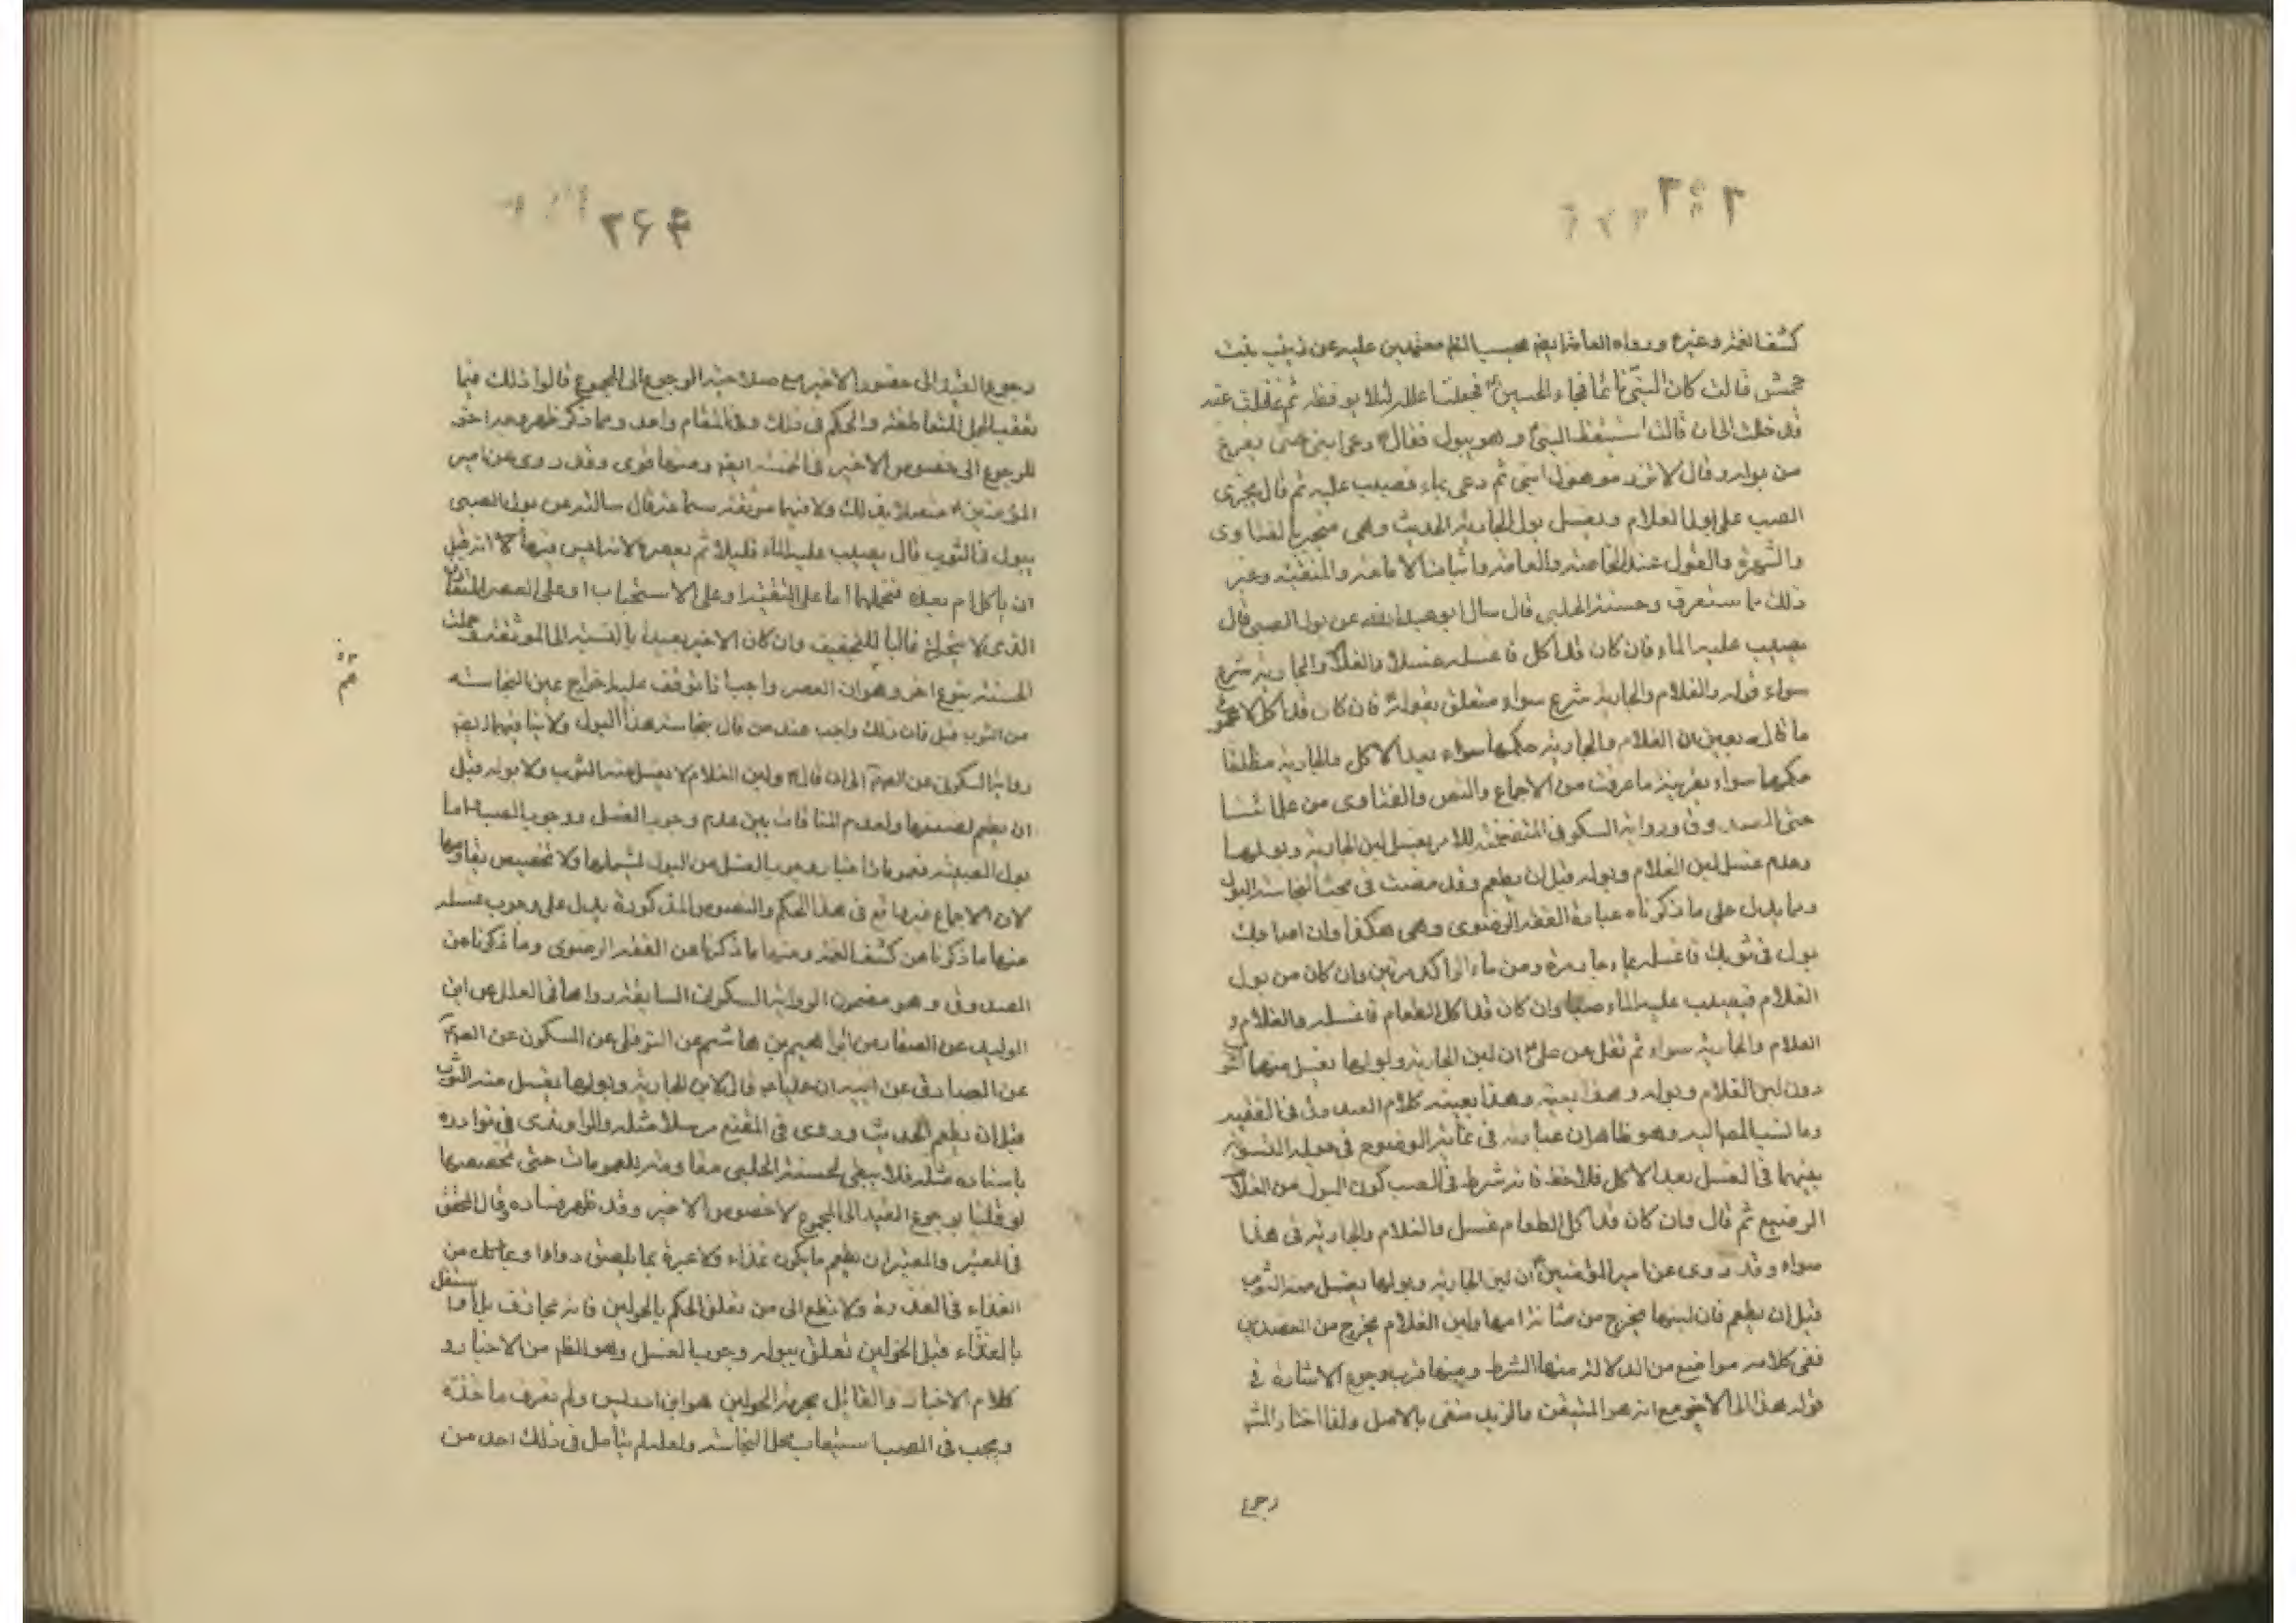 كشف الغمة وغيره ورواه العامة ايضم بحسب الظم معتمدين عليه عن زينب بنت
جحش قالت كان النبي نائما فجاء الحسين فجعلت اعلله لئلا يوقظه ثم غفلت عنه
فدخلت الى ان قالت استيقظ النبي وهو يبول فقال دعى ابنى حتى يفرغ
من بوله وقال لا تزرموه ول ابنى ثم دعى بماء فصب عليه ثم قال يجزى
الصب على بول الغلام ويغسل بول الجارية الحديث وهى منجبرة بالفتاوى
والشهرة والقول عند الخاصة والعامة واثباتنا الامامة والمنقبة وغير
ذلك ما ستعرف وحسنة الحلبى قال سال ابو عبد الله عن بول الصبى قال
يصب عليه الماء فان كان قد اكل فاغسله غسلا والغلام والجارية شرع
سواء قوله والغلام والجارية شرع سواء متعلق بقوله فان كان قد اكل لا عموم
ما قال يعنى ان الغلام والجارية حكمها سواء بعد الاكل والجارية مطلقا
حكمها سواء بقرينة ما عرفت من الاجماع والنص والفتاوى من علمائنا
حتى الصدوق ورواية السكونى المتضمنة للامر بغسل لبن الجارية وبولها
وعدم غسل لبن الغلام وبوله قبل ان يطعم وقد مضت فى مبحث نجاسة البول
ومما يدل على ما ذكرناه عبارة الفقه الرضوى وهى هكذا وان اصابك
بول فى ثوبك فاغسله بماء جارية ومن ماء راكد مرتين وان كان من بول
الغلام فيصب عليه الماء صبا وان كان قد اكل الطعام فاغسله والغلام و
الغلام والجارية سواء ثم نقل عن على ان لبن الجارية وبولها يغسل منهما الثو
دون لبن الغلام وبوله وهذا بعينه وهذا بعينه كلام الصدوق فى الفقيه
وما نسب المص اليه وهو ظاهر ان عبارته فى غاية الوضوح فى هذه التسوية
بينهما فى الغسل بعد الاكل فلاحظ فانه شرط فى الصب كون البول من الغلام
الرضيع ثم قال وان كان قد اكل الطعام غسل والغلام والجارية فى هذا
سواء وقد روى عن امير المؤمنين ان لبن الجارية وبولها يغسل منه الثوب
قبل ان يطعم فان لبنها يخرج من مثانة امها ولبن الغلام يخرج من العضدين
ففى كلامه مواضع من الدلالة منها الشرط ومنها قرب وجوع الاشارة فى
قوله هذا الى الاخير مع انه هو المتيقن والزيد منفى بالاصل ولهذا اختار المشه
رجوع
٢٦٤
رجوع القيد الى خصوص الاخير مع صلاحية الرجوع الى المجموع قالوا ذلك فيما
تعقب الجمل المتعاطفة والحكم فى ذلك وفى المقام واحد ومما ذكر ظهر وجه اخر
للرجوع الى خصوص الاخير فى الحسنة ايضم ومنها قوى وقد روى عن امير
المؤمنين متصلا بذلك ولا فيهما موثقة سماعة قال سالته عن بول الصبى
يبول فى الثوب قال يصب عليه الماء قليلا ثم يعصره لانه ليس فيها لا انه قبل
ان ياكل ام بعده فنحملها اما على التقية او على الاستحباب او على العصر المتعارف
الذى لا يترك غالبا للتجفيف وان كان الاخير بعيدا بالنسبة الى الموثقة وحملت
الحسنة بنوع اخر وهو ان العصر واجب اذا توقف عليه اخراج عين النجاسة
من الثوب قبل فان ذلك واجب عند من قال بنجاسة هذا البول ولا ينافيهما ايضم
رواية السكونى عن الصم الى ان قال ولبن الغلام لا يغسل منه الثوب ولا بوله قبل
ان يطعم لضعفها ولعدم المنافات بين عدم وجوب الغسل ووجوب الصب اما
بول الصبية فعموم اخبار وجوب الغسل من البول تشملها ولا تخصيص يقاومها
لان الاجماع فيها تم فى هذا الحكم والنصوص المذكورة يدل على وجوب غسله
منها ما ذكرنا من كشف الغمة ومنها ما ذكرنا من الفقه الرضوى وما ذكرنا عن
الصدوق وهو مضمون الرواية السكونى السابقة رواها فى العلل عن ابن
الوليد عن الصفار عن ابراهيم بن هاشم عن النوفلى عن السكونى عن الصم
عن الصادق عن ابيه ان عليا قال لبن الجارية وبولها يغسل منه الثوب
قبل ان يطعم الحديث وروى فى المقنع مرسلا مثله والراوندى فى نوادره
باسناده مثله فلا يبقى لحسنة الحلبى مقاومة للعمومات حتى تخصصها
لو قلنا برجوع القيد الى المجموع لا خصوص الاخير وقد ظهر فساده وقال المحقق
فى المعتبر والمعتبر ان يطعم ما يكون غذاء ولا عبرة بما يلعق دواء او
الغذاء فى الندرة ولا تطع الى من يعلق الحكم بالحولين فانه مجازف بل لو استقل
بالغذاء قبل الحولين تعلق ببوله وجوب الغسل وهو الظم من الاخبار و
كلام الاخيار والقائل بحرمة الحولين هو ابن ادريس ولم نعرف ماخذه
ويجب فى الصب استيعاب محل النجاسة ولعله لم يتامل فى ذلك احد من